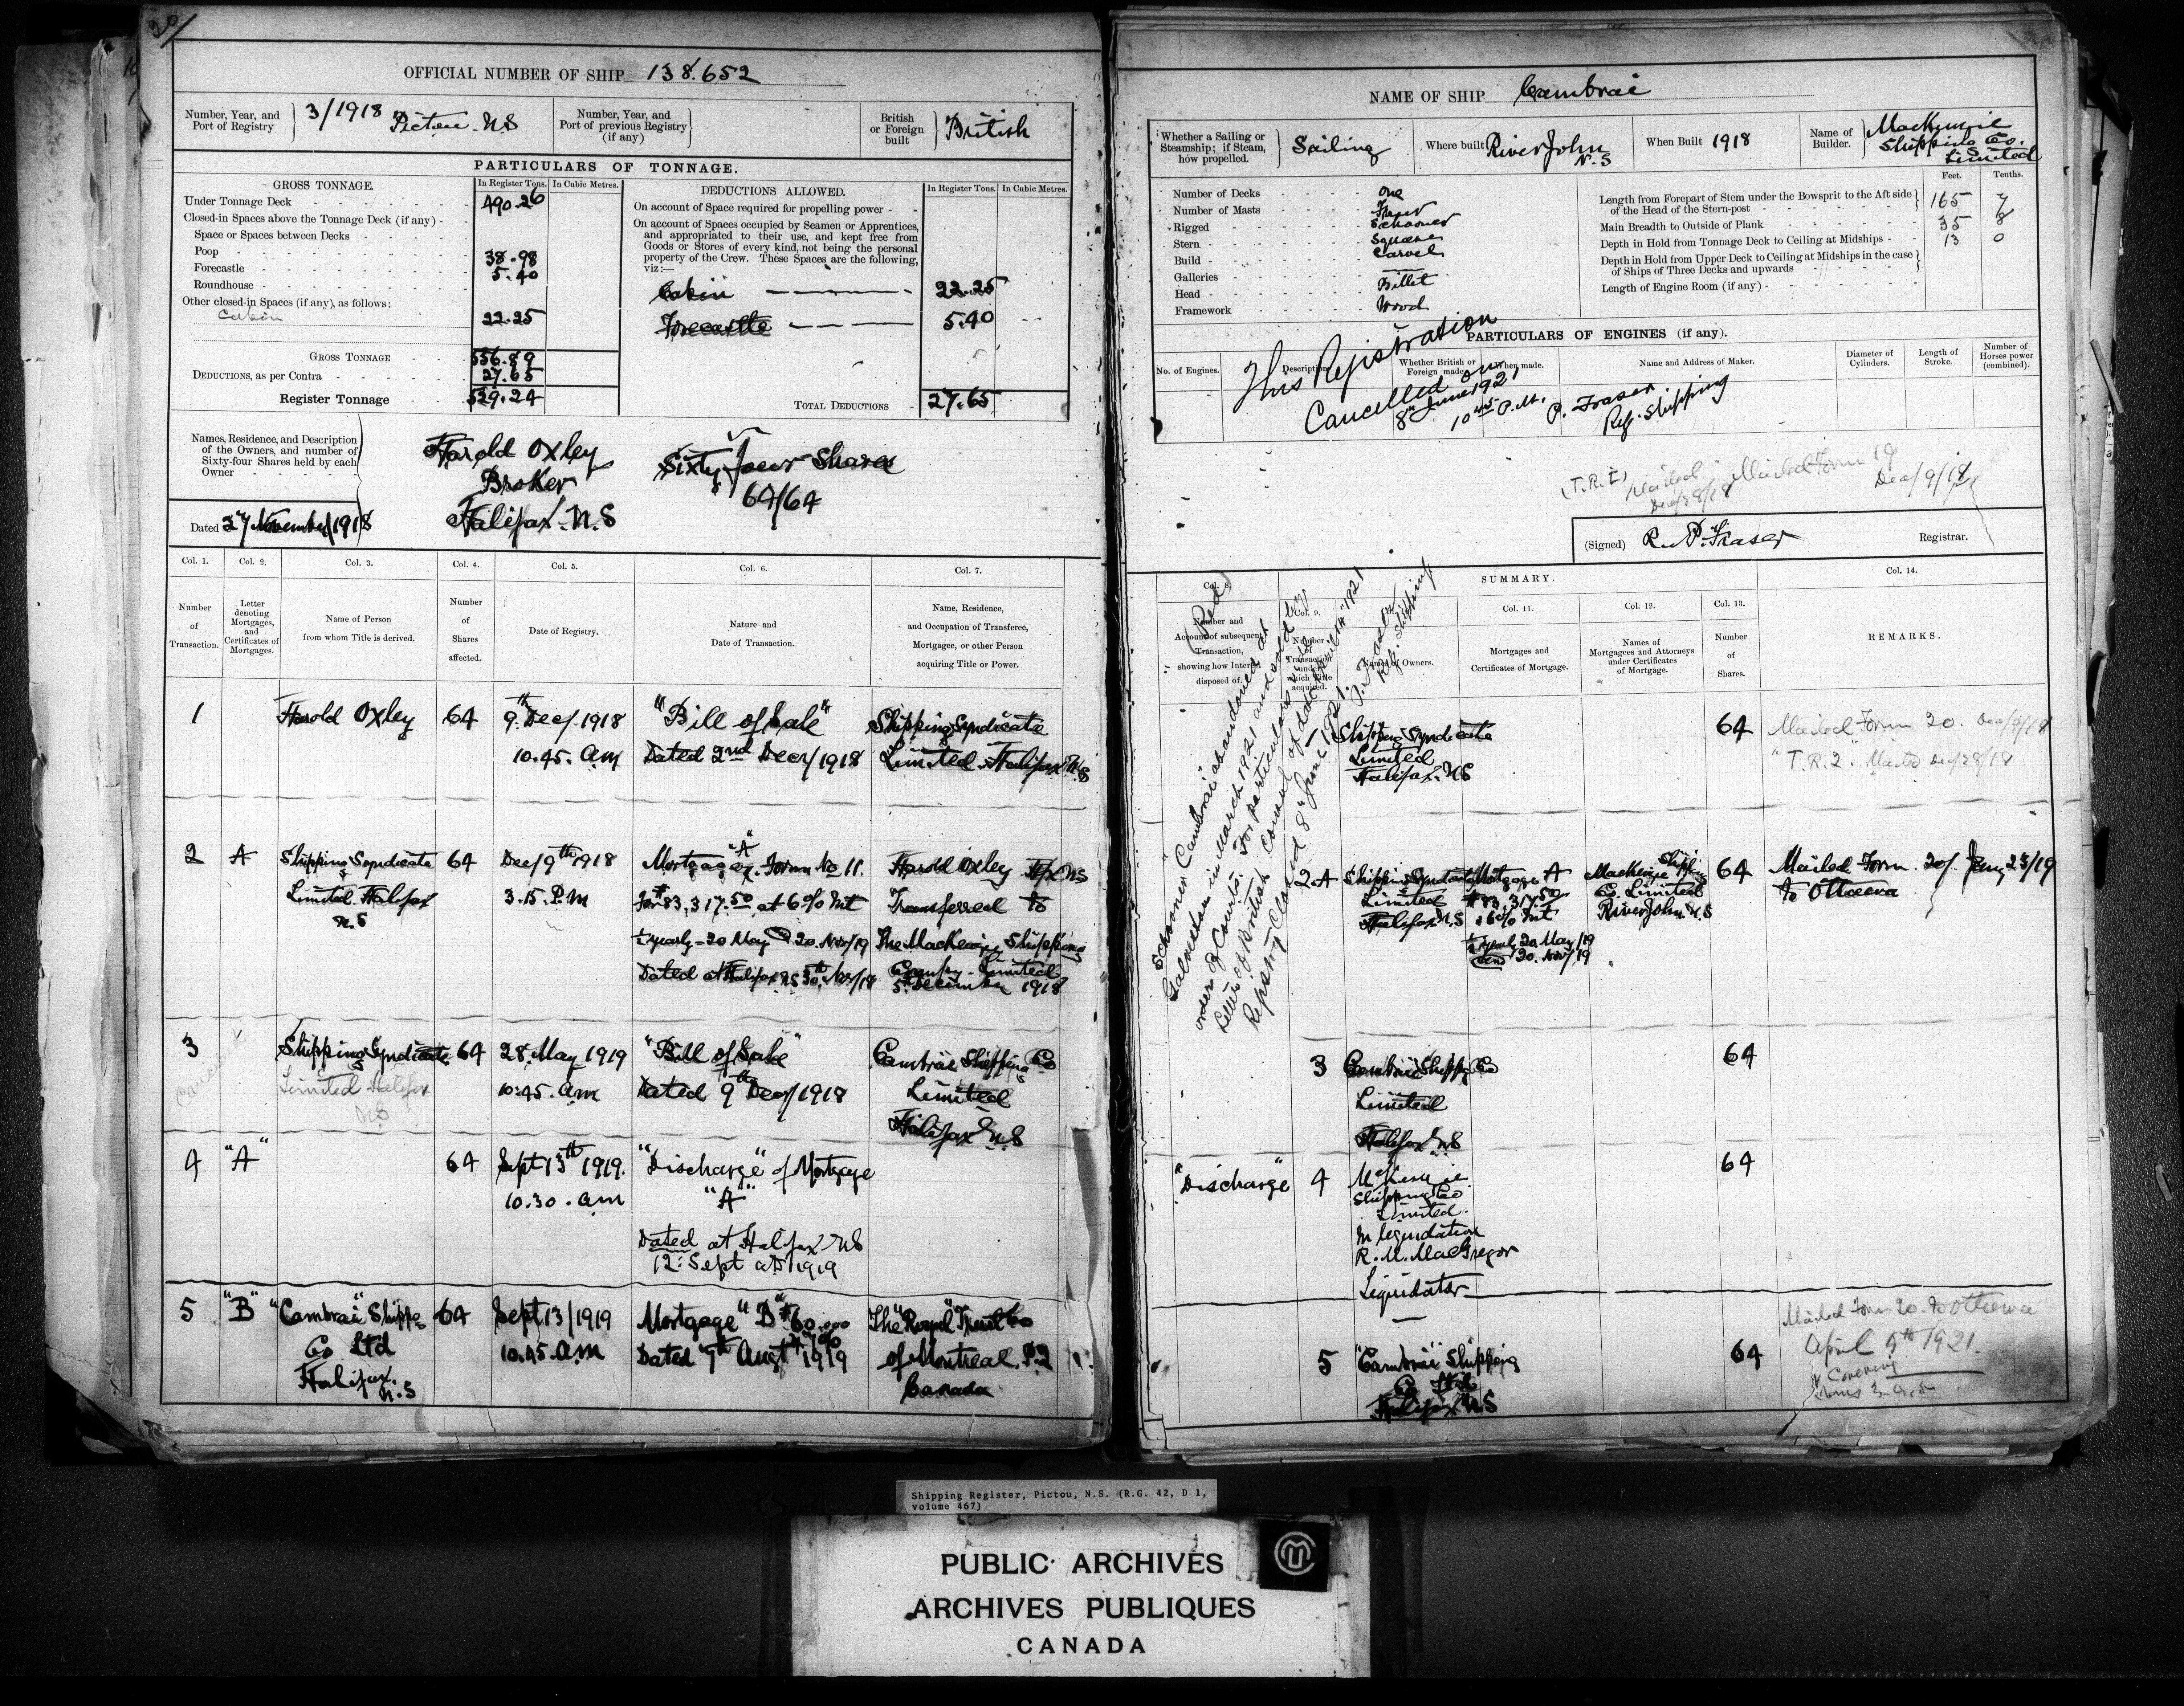 20/
OFFICIAL NUMBER OF SHIP 138.652
Number, Year, and Port of Registry
3/1918 Pictou N.S
Number, Year, and Port of previous Registry (if any)
British or Foreign built
British
PARTICULARS OF TONNAGE.
GROSS TONNAGE.
In Register Tons.
In Cubic Metres.
Under Tonnage Deck 490.26
Closed-in Spaces above the Tonnage Deck (if any) -
Space or Spaces between Decks
Poop 38.98
Forecastle 5.40
Roundhouse
Other closed-in Spaces (if any), as follows:
Cabin 22.25
GROSS TONNAGE 556.89
DEDUCTIONS, as per Contra 27.65
Register Tonnage 529.24
DEDUCTIONS ALLOWED.
In Register Tons.
In Cubic Metres.
On account of Space required for propelling power -
On account of Spaces occupied by Seamen or Apprentices,
and appropriated to their use, and kept free from
Goods or Stores of every kind, not being the personal
property of the Crew. These Spaces are the following,
viz:—
Cabin 22.25
Forecastle 5.40
TOTAL DEDUCTIONS 27.65
Names, Residence, and Description
of the Owners, and number of
Sixty-four Shares held by each
Owner
Harold Oxley
Broker
Halifax. N.S
Sixty four Shares
64/64
Dated 27 November/1918
Col. 1.
Col. 2.
Col. 3.
Col. 4.
Col. 5.
Col. 6.
Col. 7.
Number of Transaction.
Letter denoting Mortgages, and Certificates of Mortgages.
Name of Person from whom Title is derived.
Number of Shares affected.
Date of Registry.
Nature and Date of Transaction.
Name, Residence, and Occupation of Transferee, Mortgagee, or other Person acquiring Title or Power.
1 Harold Oxley 64 9th Dec/1918 "Bill of Sale" Shipping Syndicate
10.45. am Dated 2nd Decr/1918 Limited Halifax N.S
2 A Shipping Syndicate 64 Dec/9th 1918 Mortgage "A" Form No 11. Harold Oxley Hfx NS
Limited Halifax 3.15. P.M For $83,317.50 at 6% Int Transferred to
N.S ½ yearly - 20 May 20. Nov/19 The MacKenzie Shipping
Dated at Halifax NS 30th Nov/18 Company Limited
5th December 1918
3 Shipping Syndicate 64 28. May 1919 "Bill of Sale" Cambrai Shipping Co
Cancelled
Limited Halifax 10.45. am Dated 9th Decr/1918 Limited
NS Halifax N.S
4 "A" 64 Sept 13th 1919. "Discharge" of Mortgage
10.30. am "A"
Dated at Halifax NS
12: Sept AD 1919
5 "B" "Cambrai" Shippg 64 Sept 13/1919 Mortgage "B" $60,000
Co Ltd 10.45. a.m Dated 7th Augt 1919
Halifax. N.S
The "Royal" Trust Co
of Montreal. P.Q
Canada
NAME OF SHIP Cambrai
Whether a Sailing or Steamship; if Steam, how propelled.
Sailing
Where built River John N.S
When Built 1918
Name of Builder.
MacKenzie
Shipping Co.
Limited
Number of Decks One
Number of Masts Four
Rigged Schooner
Stern Square
Build Carvel
Galleries
Head Billet
Framework Wood
Feet. Tenths.
Length from Forepart of Stem under the Bowsprit to the Aft side
of the Head of the Stern-post 165 7
Main Breadth to Outside of Plank 35 8
Depth in Hold from Tonnage Deck to Ceiling at Midships 13 0
Depth in Hold from Upper Deck to Ceiling at Midships in the case
of Ships of Three Decks and upwards
Length of Engine Room (if any)
PARTICULARS OF ENGINES (if any).
No. of Engines.
Description.
Whether British or Foreign made.
When made.
Name and Address of Maker.
Diameter of Cylinders.
Length of Stroke.
Number of Horses power (combined).
This Registration
Cancelled on
8th June 1921
10 P.M.
P. Fraser
Reg. Shipping
(T.R.1) Mailed
Dec/28/18
Mailed Form 19
Dec/9/18
(Signed) R. P. Fraser Registrar.
SUMMARY.
Col. 8.
Col. 9.
Col. 11.
Col. 12.
Col. 13.
Col. 14.
Number and Account of subsequent Transaction, showing how Interest disposed of.
Number of Transaction under which Title acquired.
Names of Owners.
Mortgages and Certificates of Mortgage.
Names of Mortgagees and Attorneys under Certificates of Mortgage.
Number of Shares.
REMARKS.
Schooner "Cambrai" abandoned at
Galveston in March 1921 and sold by
order of Courts. For particulars see
letter of British Consul of date April 14th 1921
Registry Closed 8th June 1921. P. Fraser
Reg. Shipping
Shipping Syndicate
Limited
Halifax. N.S
64
Mailed Form 20. Dec/9/18
"T.R.2". Mailed Dec/28/18
2.A Shipping Syndicate
Limited
Halifax N.S
Mortgage A
$83,317.50
6% Int
½ yearly 20 May/19
and 20. Nov/19
MacKenzie Shippg
Co. Limited
River John N.S
64
Mailed Form. 20/ Jany 23/19
To Ottawa
3 Cambrai Shippg Co
Limited
Halifax N.S
64
"Discharge" 4 McKenzie
Shipping Co
Limited.
In liquidation
R. M. MacGregor
Liquidator
64
5 "Cambrai" Shipping
Co Ltd
Halifax N.S
64
Mailed Form 20. to Ottawa
April 9th/1921.
Covering
Items 3-4-5-
Shipping Register, Pictou, N.S. (R.G. 42, D 1,
volume 467)
PUBLIC ARCHIVES
ARCHIVES PUBLIQUES
CANADA